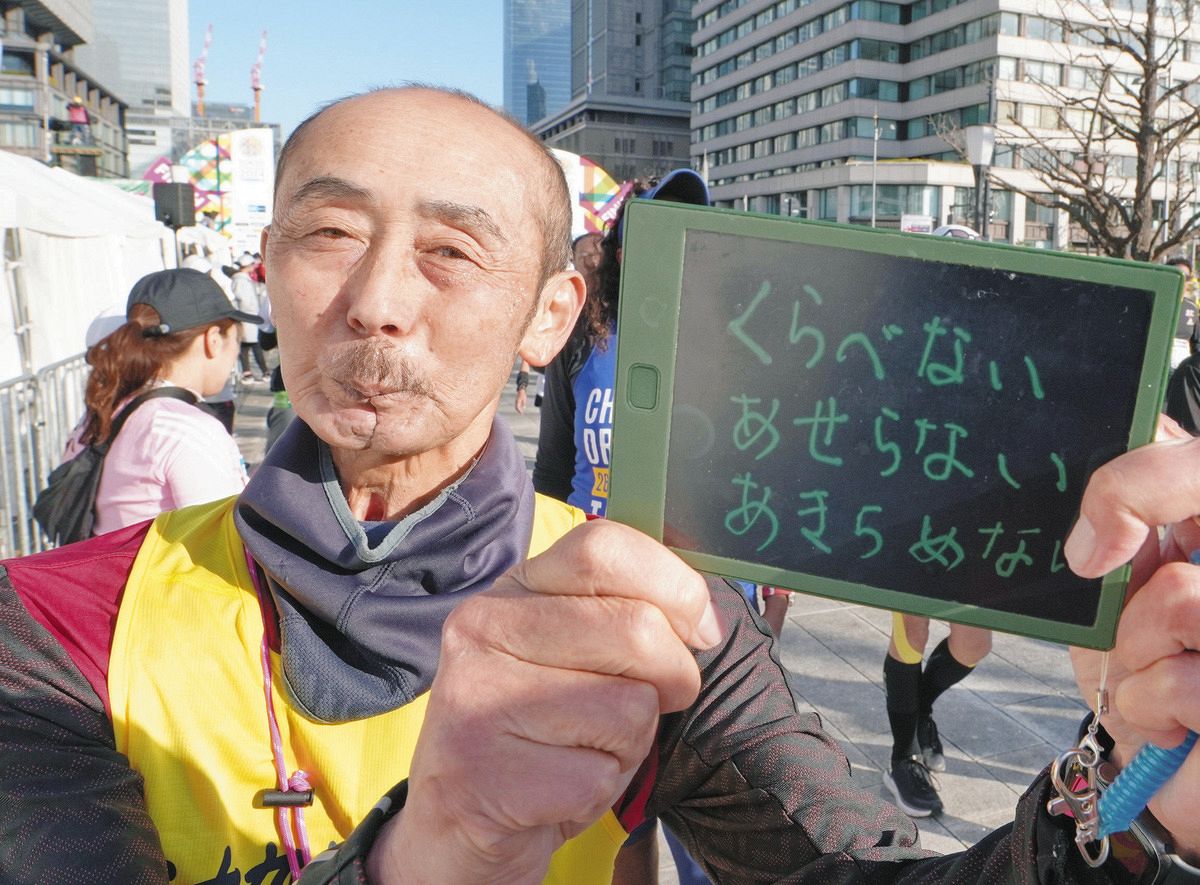 くらべない
あせらない
あきらめない
CH